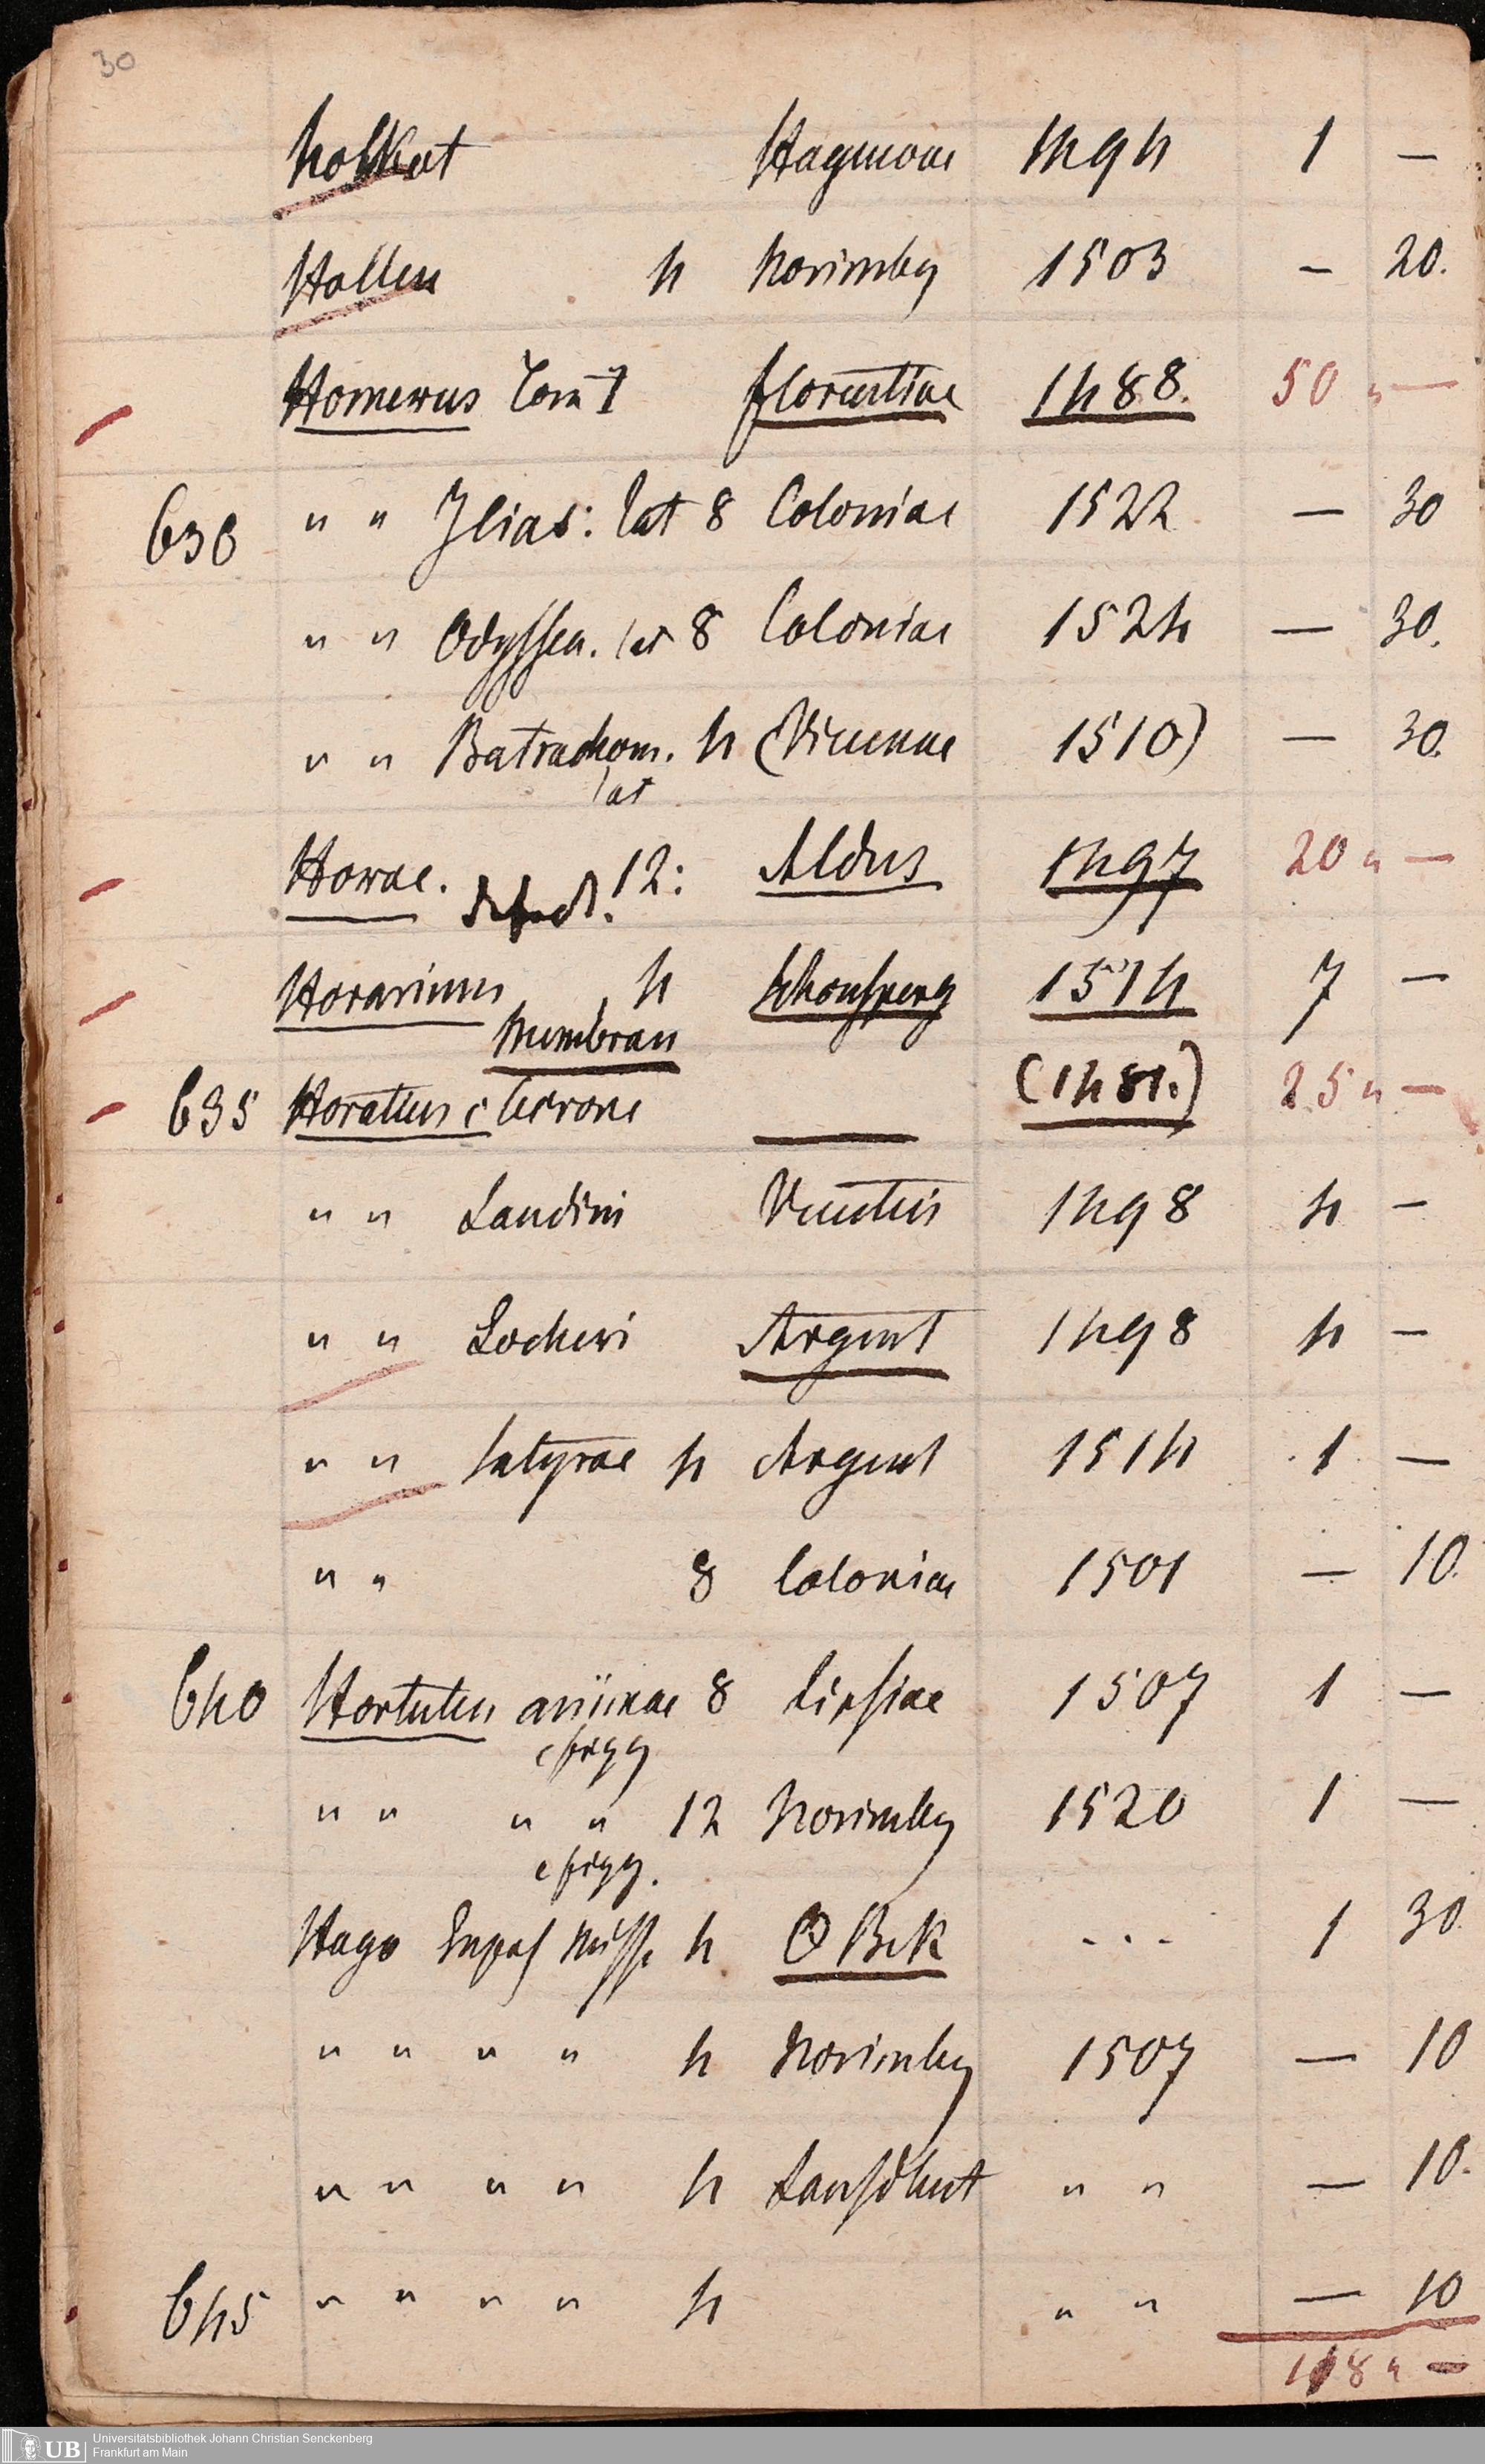 30
Holkot Hagenoae 1494 1 —
Hollen 4 Norimbg 1503 — 20.
Homerus Tom I florentiae 1488. 50 " —
630 " " Ilias: lat 8 Coloniae 1522 — 30
" " Odyssea. lat 8 Coloniae 1524 — 30.
" " Batrachom. 4 (Viennae 1510) — 30.
lat
Horae. 12: Aldus 1497 20 " —
defect.
Horarium 4 Schonsperg 1514 7 —
Membran
635 Horatius c (1481.) 25 " —
" " Landini Venetiis 1498 4 —
" " Locheri Argent 1498 4 —
" " Satyrae 4 Argent 1514 1 —
" " 8 Coloniae 1501 — 10.
640 Hortulus animae 8 Lipsiae 1507 1 —
c figg
" " " " 12 Norimbg 1520 1 —
c figg.
Hugo Expos Missae 4 O Bek ... 1 30.
" " " " 4 Norimbg 1507 — 10
" " " " 4 Landshut " " — 10.
645 " " " " 4 " " — 10
118 " —
UB Universitätsbibliothek Johann Christian Senckenberg
Frankfurt am Main